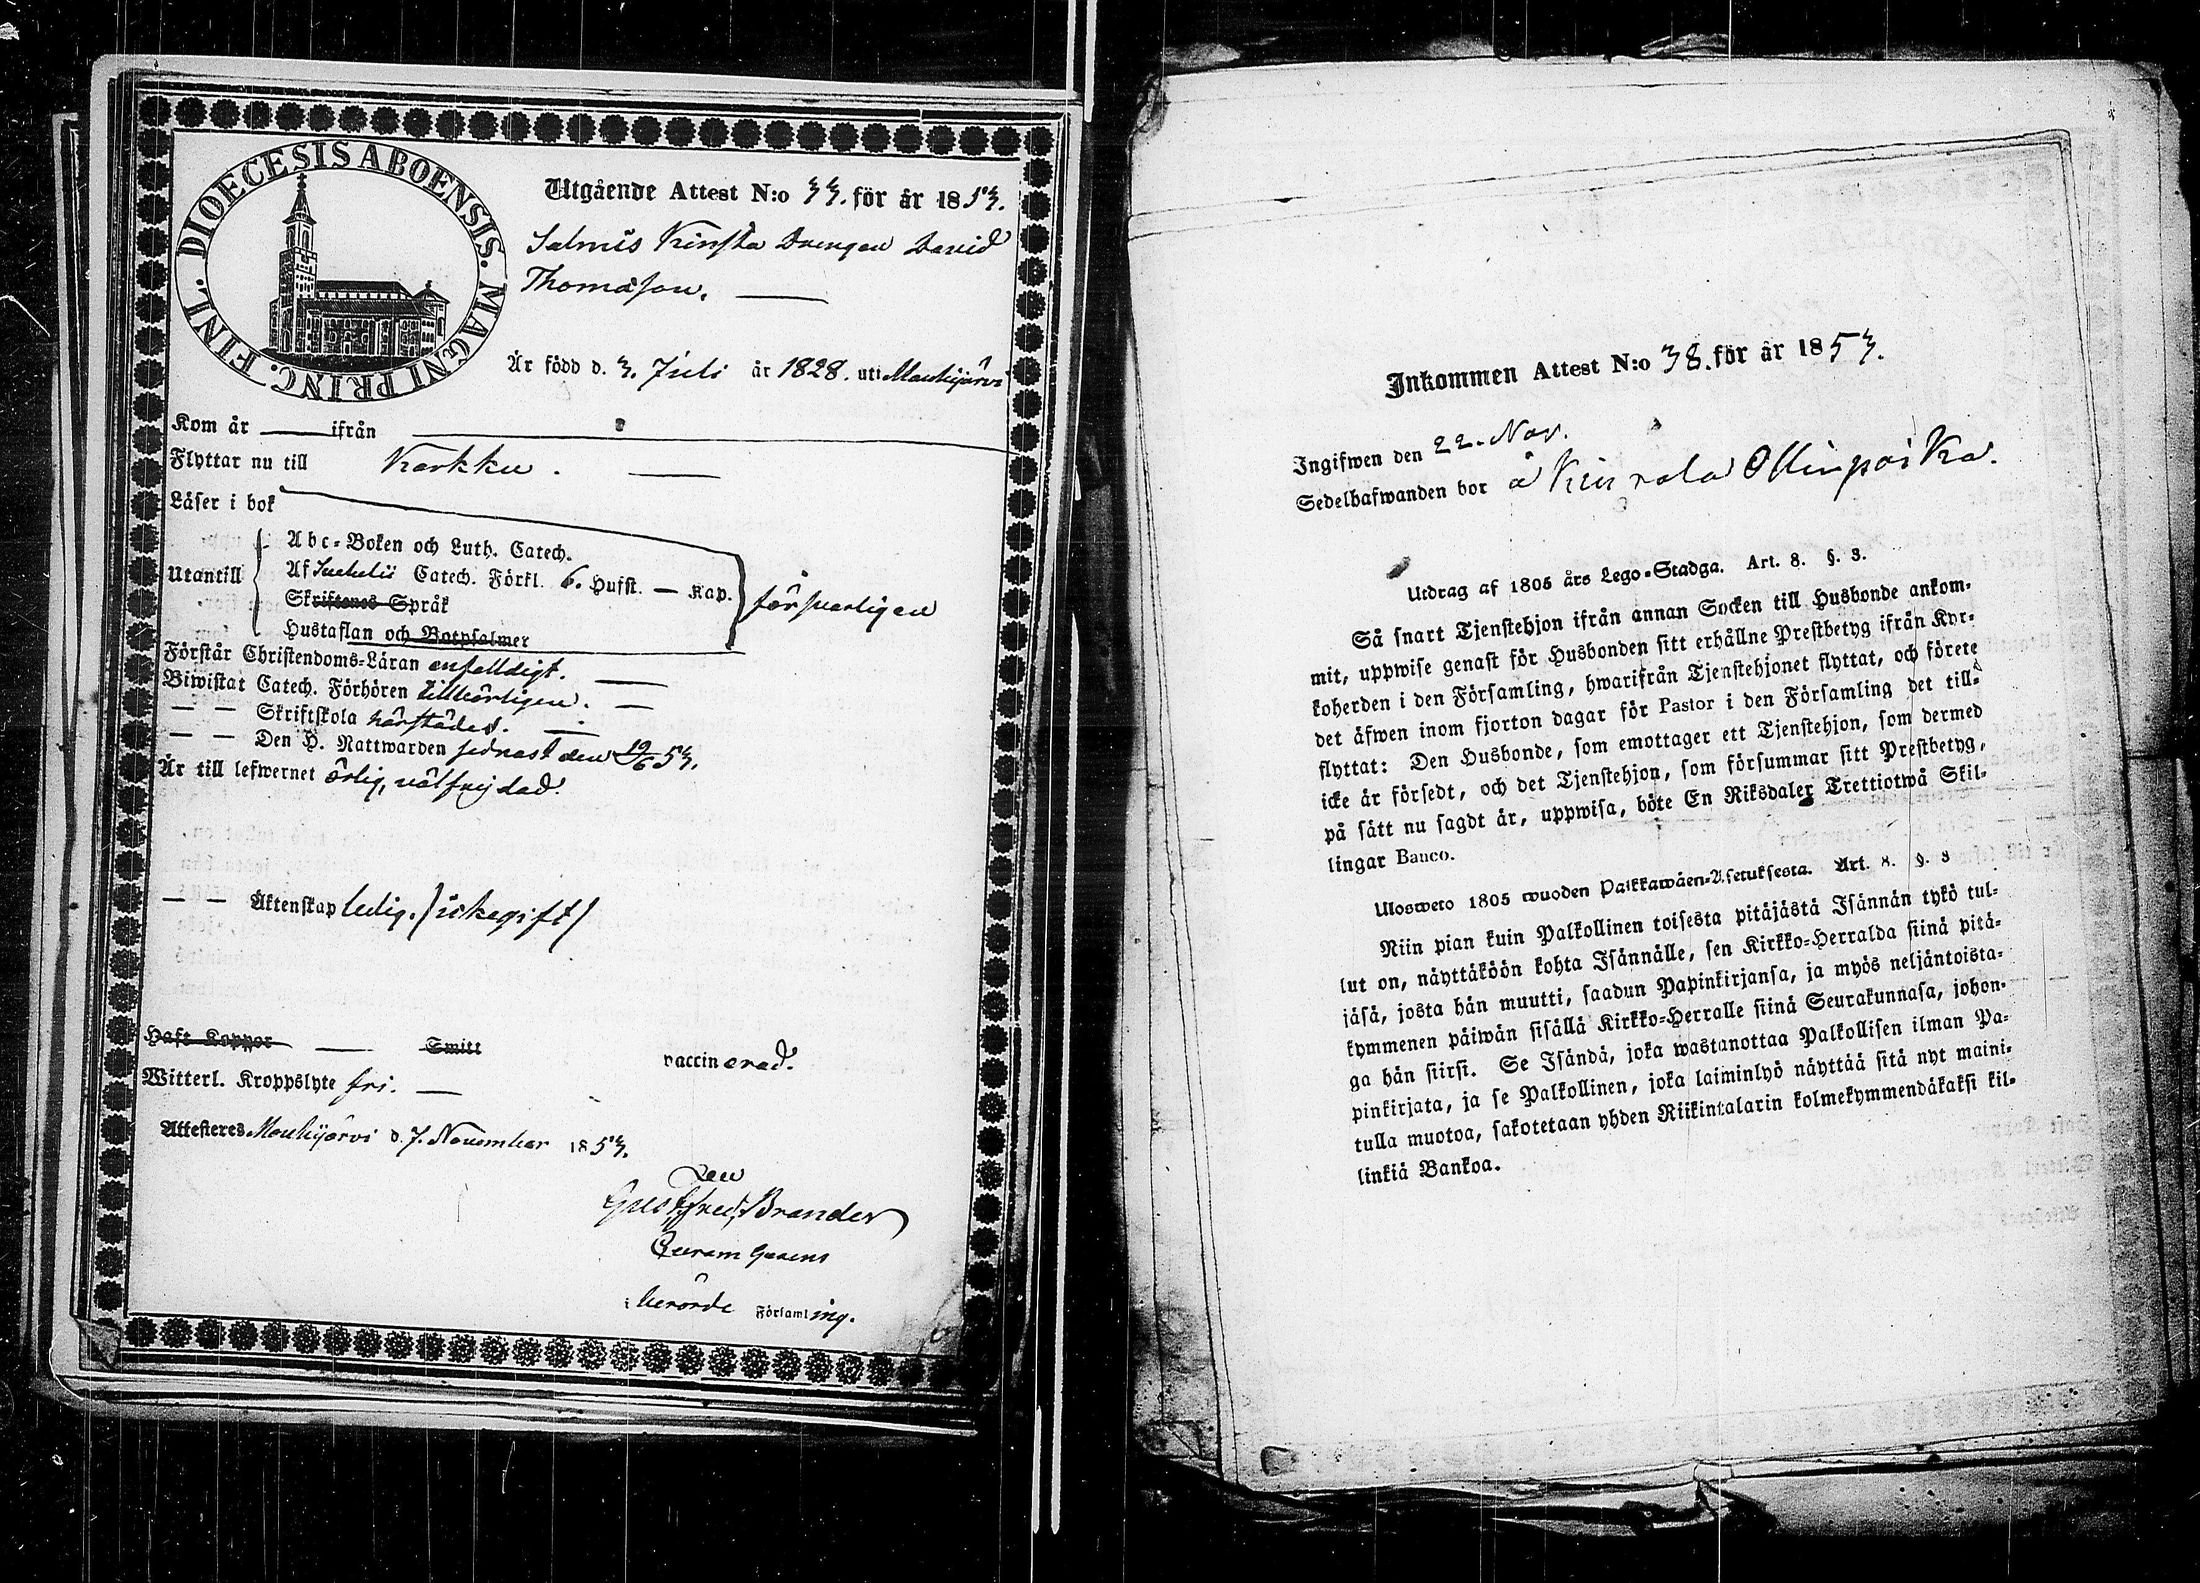 DIOECESIS ABOENSIS. MAGNI PRINC. FINL.
Utgående Attest N:o 33. för år 1853.
Salmis Kinsta Drengen David
Thomasson.
Är född d. 3. Juli år 1828. uti Mouhijärvi
Kom år — ifrån
Flyttar nu till Karkku.
Läser i bok
Utantill
Abc-Boken och Luth. Catech.
Af Suebelii Catech. Förkl. 6. Hufst. — Kap.
Skriftenes Språk
försvarligen
Hustaflan och Botpsalmer
Förstår Christendoms-Läran enfalldigt.
Biwistat Catech. Förhören tillbörligen.
— — Skriftskola härstädes.
— — Den H. Nattwarden sednast den 19/6 53.
Är till lefwernet ärlig, välfrejdad.
— — Äktenskap ledig. /ickegift/
Haft Koppor — Smitt vaccinerad.
Witterl. Kroppslyte fri.
Attesteras Mouhijärvi d. 7. November 1853.
Brander
Curam Gerens
i berörde Församling.
Inkommen Attest N:o 38. för år 1853.
Ingifwen den 22. Nov.
Sedelhafwanden bor å Ollinpoika.
Utdrag af 1805 års Lego-Stadga. Art. 8. §. 3.
Så snart Tjenstehjon ifrån annan Socken till Husbonde ankom-
mit, uppwise genast för Husbonden sitt erhållne Prestbetyg ifrån Kyr-
koherden i den Församling, hwarifrån Tjenstehjonet flyttat, och förete
det äfwen inom fjorton dagar för Pastor i den Församling det till-
flyttat: Den Husbonde, som emottager ett Tjenstehjon, som dermed
icke är försedt, och det Tjenstehjon, som försummar sitt Prestbetyg,
på sätt nu sagdt är, uppwisa, böte En Riksdaler Trettiotwå Skil-
lingar Banco.
Ulosweto 1805 wuoden Palkkawäen-Asetuksesta. Art. 8. §. 3
Niin pian kuin Palkollinen toisesta pitäjästä Isännän tykö tul-
lut on, näyttäköön kohta Isännälle, sen Kirkko-Herralda siinä pitä-
jäsä, josta hän muutti, saadun Papinkirjansa, ja myös neljäntoista-
kymmenen päiwän sisällä Kirkko-Herralle siinä Seurakunnasa, johon-
ga hän siirsi. Se Isändä, joka wastanottaa Palkollisen ilman Pa-
pinkirjata, ja se Palkollinen, joka laiminlyö näyttää sitä nyt maini-
tulla muotoa, sakotetaan yhden Riikintalarin kolmekymmendäkaksi kil-
linkiä Bankoa.